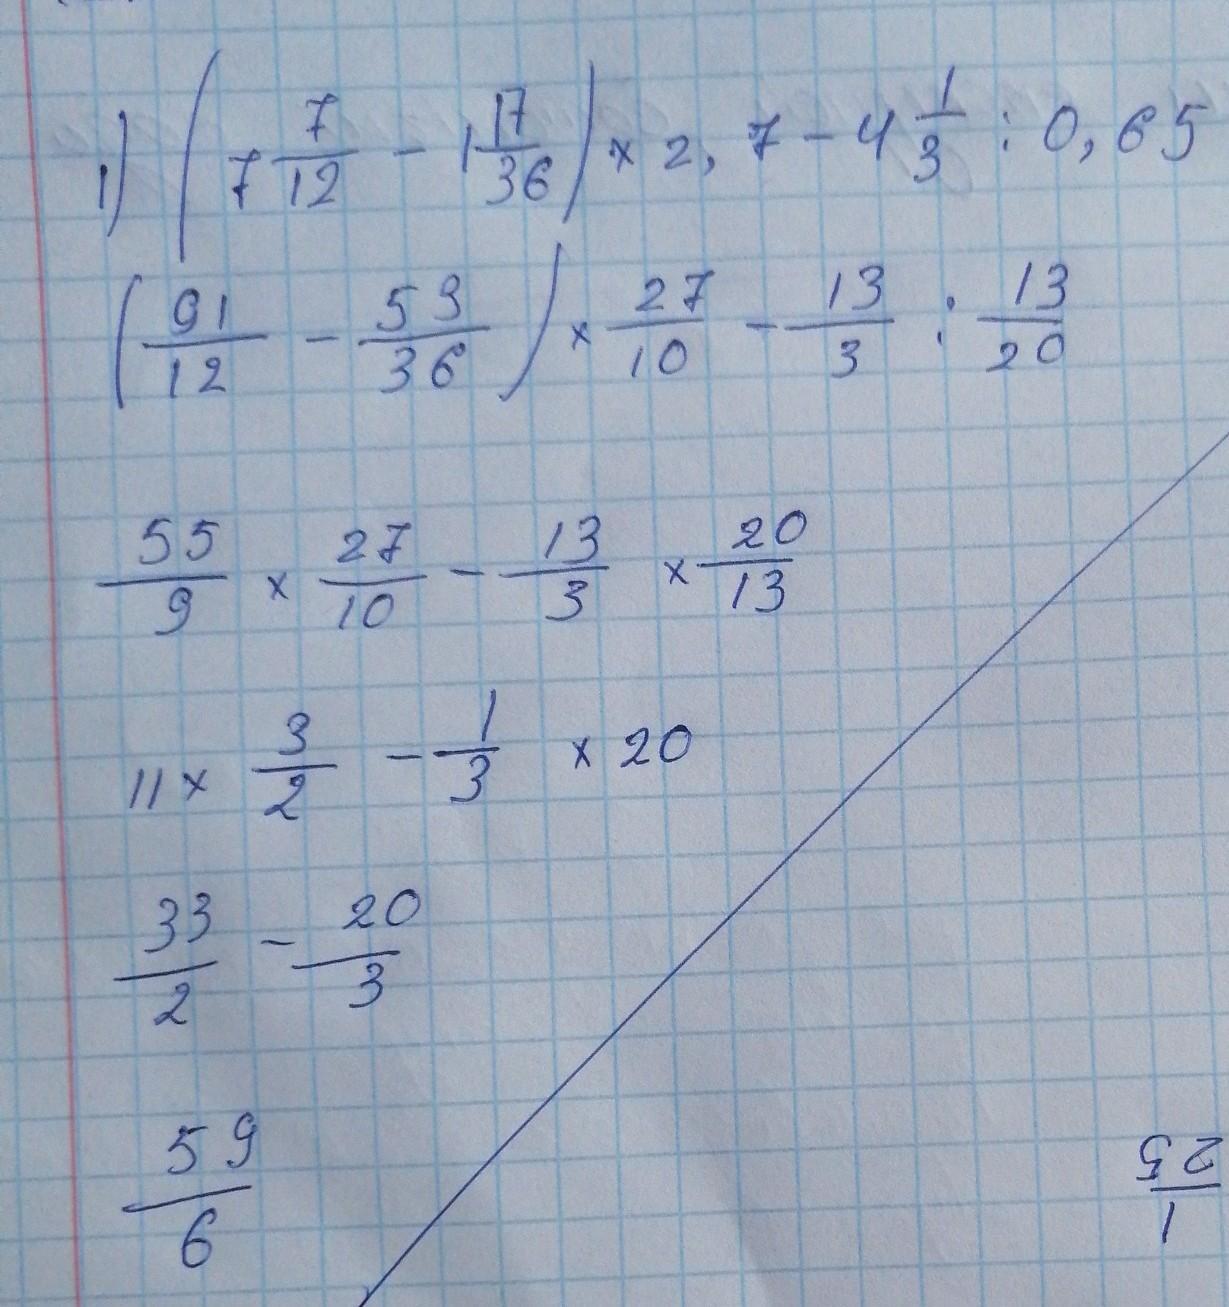 1) (7 7/12 - 1 17/36) × 2,7 - 4 1/3 : 0,65
(91/12 - 59/36) × 27/10 - 13/3 : 13/20
55/9 × 27/10 - 13/3 × 20/13
11 × 3/2 - 1/3 × 20
33/2 - 20/3
59/6
1/25